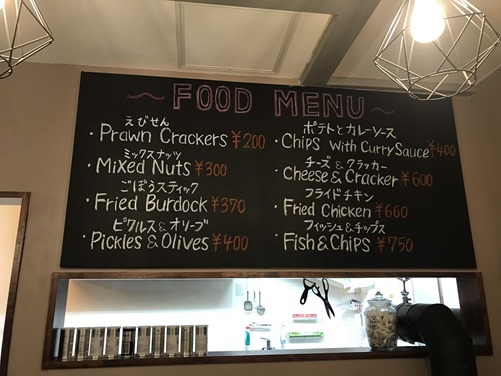 ~ FOOD MENU ~
えびせん
・Prawn Crackers ¥200
ミックスナッツ
・Mixed Nuts ¥300
ごぼうスティック
・Fried Burdock ¥370
ピクルス&オリーブ
・Pickles & Olives ¥400
ポテトとカレーソース
・Chips With Curry Sauce ¥400
チーズ&クラッカー
・Cheese & Cracker ¥600
フライドチキン
・Fried Chicken ¥660
フィッシュ&チップス
・Fish & Chips ¥750